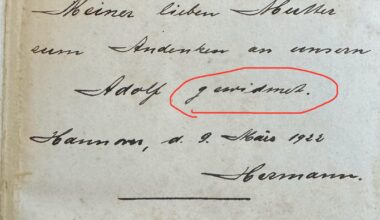 Meiner lieben Mutter
zum Andenken an unsern
Adolf gewidmet.
Hannover, d. 9. März 1922
Hermann.